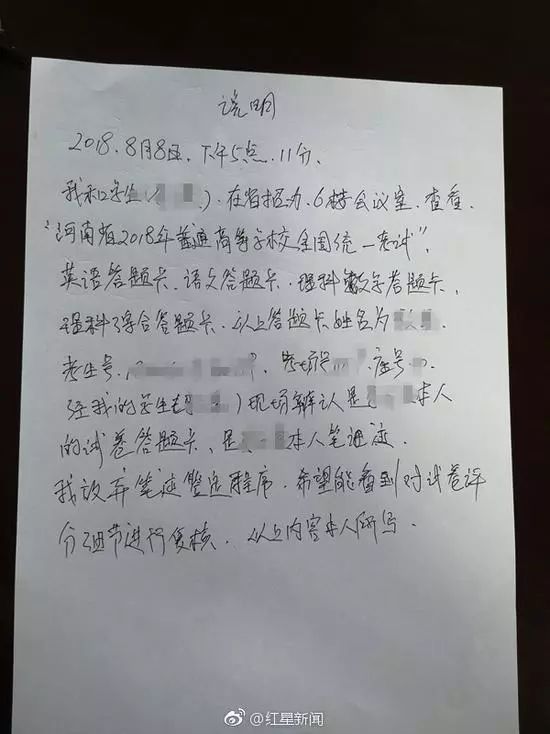 说明
2018.8月8日、下午5点.11分、
我和学生()、在省招办、6楼会议室、查看、
"河南省2018年普通高等学校全国统一考试"、
英语答题卡、语文答题卡、理科数学答题卡、
理科综合答题卡、以上答题卡姓名为
考生号、考场号、座号
经我的学生()现场辨认是本人
的试卷答题卡、是本人笔迹、
我放弃笔迹鉴定程序、希望能看到对试卷评
分细节进行复核、以上内容本人所写.
@红星新闻